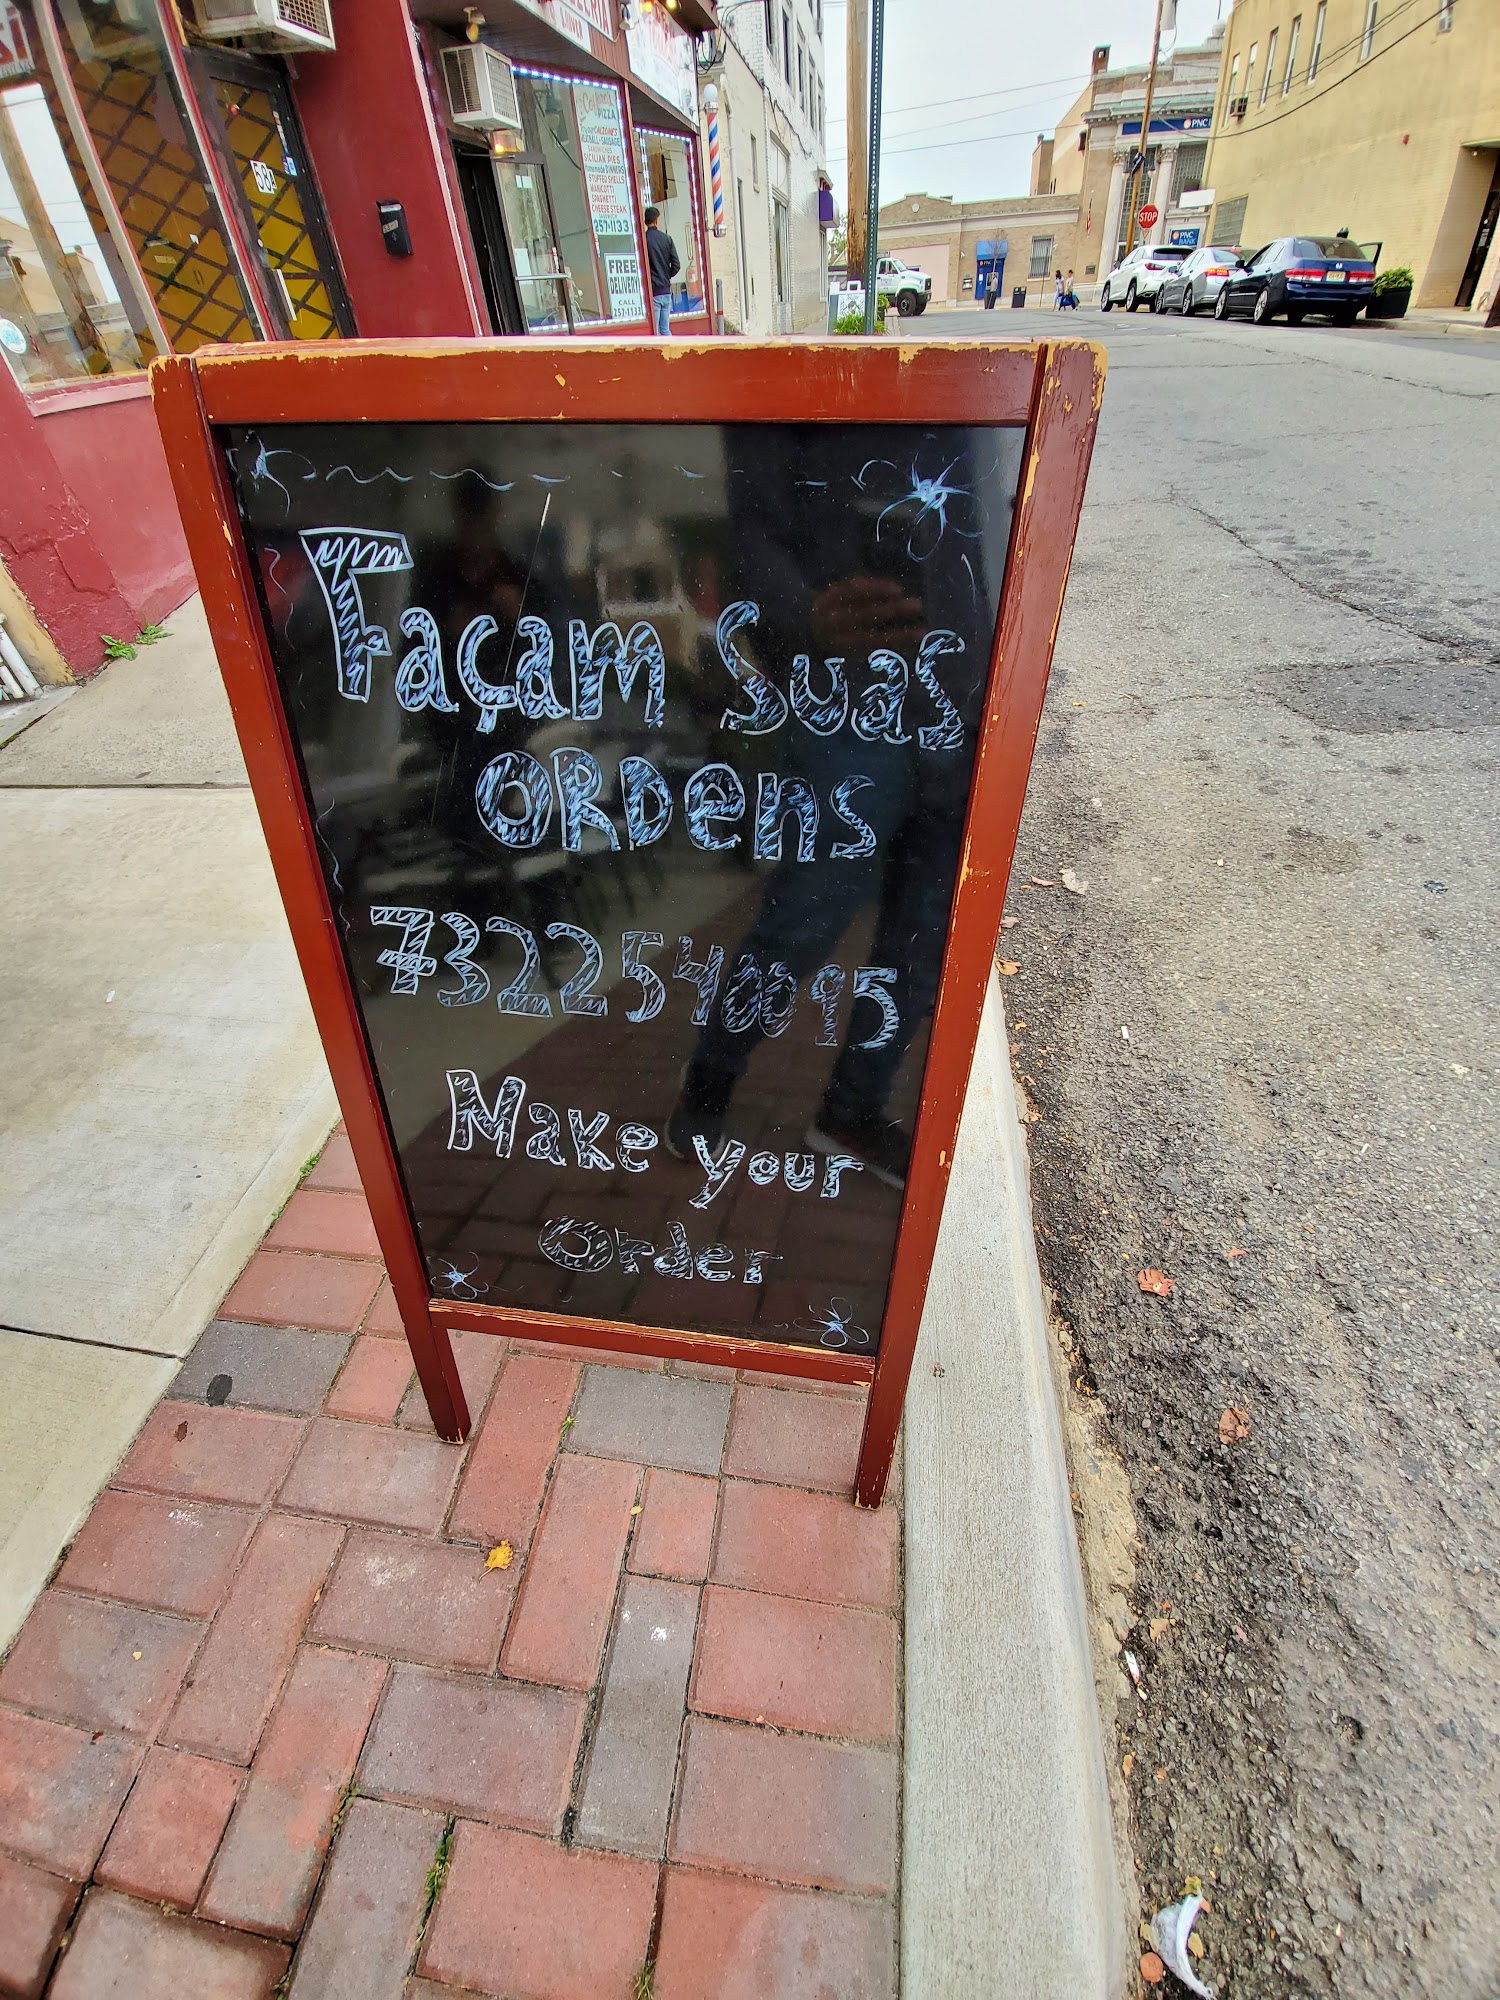 Façam Suas
ORDens
7322540095
Make your
Order
58A
PIZZA
CALZONES
MEATBALL - SAUSAGE
SANDWICHES
SICILIAN PIES
DINNERS
STUFFED SHELLS
MANICOTTI
SPAGHETTI
CHEESE STEAK
257-1133
FREE
DELIVERY
CALL
257-1133
PNC
STOP
PNC
BANK